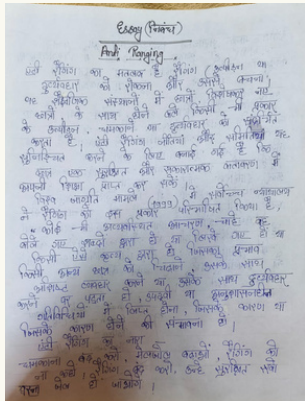 Essay (निबंध)
Anti Ranging
एंटी रैगिंग का मतलब है रैगिंग
दुर्व्यवहार को रोकना और उससे बचना।
यह शैक्षणिक संस्थानों में
छात्रों के साथ होने वाले किसी भी प्रकार
के उत्पीड़न, धमकाने या दुर्व्यवहार को
करता है। एंटी रैगिंग नीतियाँ और
सुनिश्चित करने के लिए बनाई गई हैं कि
छात्र एक सुरक्षित और सकारात्मक वातावरण में
अपनी शिक्षा प्राप्त कर सकें
विश्व जागृति मामले (1999) में सर्वोच्च न्यायालय
ने रैगिंग को इस प्रकार परिभाषित किया है:
कोई भी आचरण चाहे वह
बोले गए शब्दों द्वारा हो या लिखे गए हो या
किसी ऐसे कृत्य द्वारा हो जिसका प्रभाव
किसी अन्य छात्र को चिढ़ाने, उसके साथ
व्यवहार करने या उसके साथ दुर्व्यवहार
करने का पड़ता हो, अथवा
गतिविधियों में लिप्त होना, जिसके कारण या
जिसके कारण होने की संभावना हो।
एंटी रैगिंग का नारा
धमकाना बंद करो, बढ़ाओ, रैगिंग को
ना कहो, रैगिंग बंद करो, उन्हें सुरक्षित रखो
हो जाओगे।